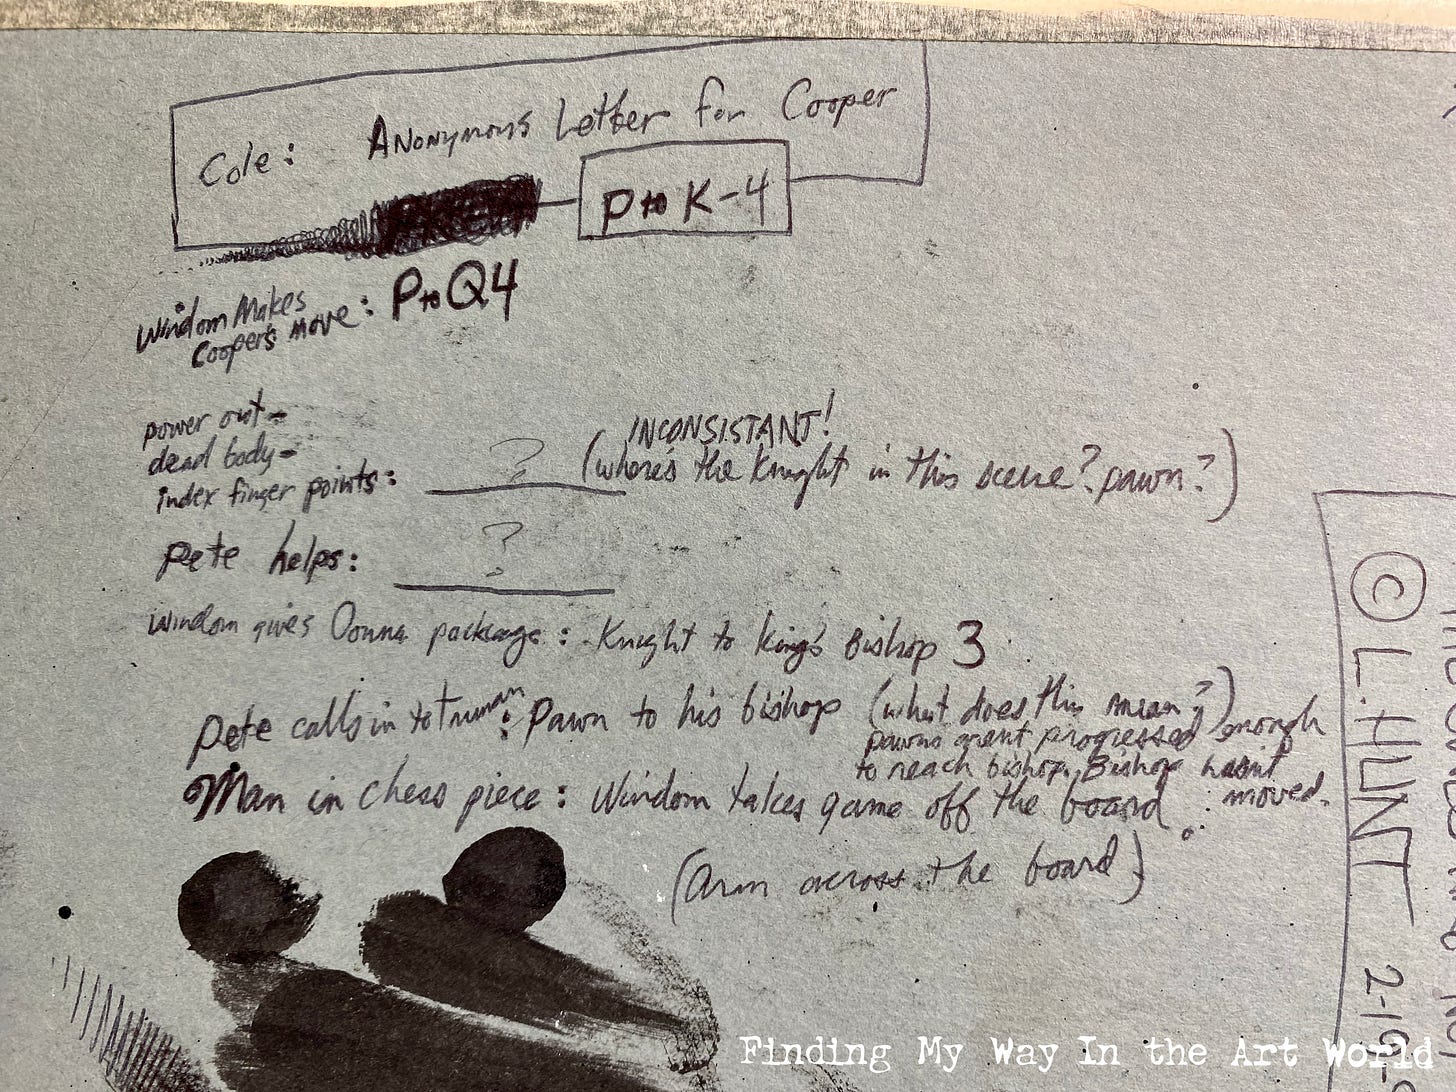 Cole: Anonymous Letter for Cooper
P to K-4
Windom Makes
Cooper's move: P to Q4
power out -
dead body -
index finger points: ?
INCONSISTANT!
(where's the Knight in this scene? pawn?)
Pete helps: ?
Windom gives Donna package: Knight to king's Bishop 3
Pete calls in to Truman: Pawn to his bishop (what does this mean?)
pawns arent progressed enough
to reach bishop. Bishop hasn't
moved.
Man in chess piece: Windom takes game off the board.
(arm across the board)
© L. HUNT 2-19
Finding My Way In the Art World